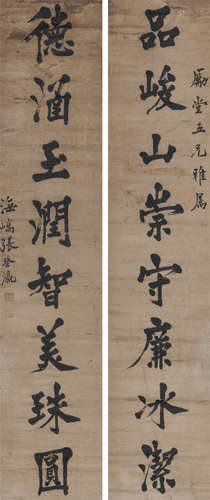 品峻山崇守廉冰潔
勵堂五兄雅屬
德涵玉潤智美珠圓
海嶠張登瀛